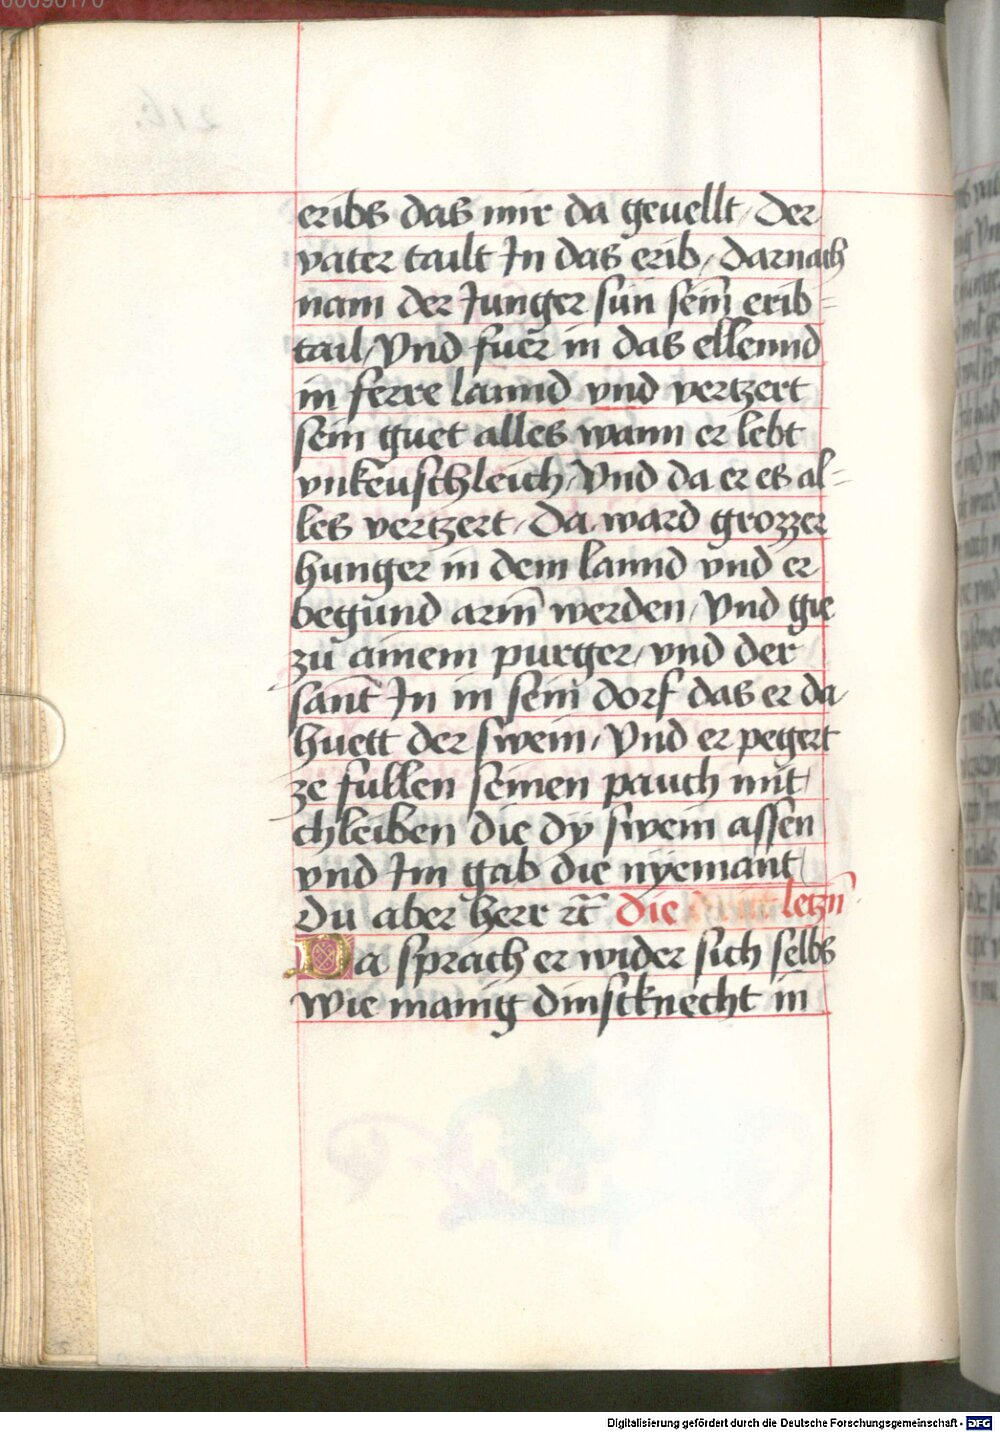 eribs das mir da geuellt / Der
vater tailt In das erib / Darnach
nam der Junger sun sein erib=
tail / Vnd fuer in das ellennd
in ferre lannd vnd vertzert
sein guet alles wann er lebt
vnkeuschleich / Vnd da er es al=
les vertzert / Da ward grozzer
hunger in dem lannd vnd er
begund arm werden / Vnd gie
zu ainem purger / vnd der
sant In in sein dorf das er da
huett der swein / Vnd er pegert
ze fullen seinen pauch mit
chleiben die dy swein assen
vnd Im gab die nyemant
Du aber herr rc̃ die letzñ
Da sprach er wider sich selbs
Wie manig dinstknecht in
Digitalisierung gefördert durch die Deutsche Forschungsgemeinschaft - DFG